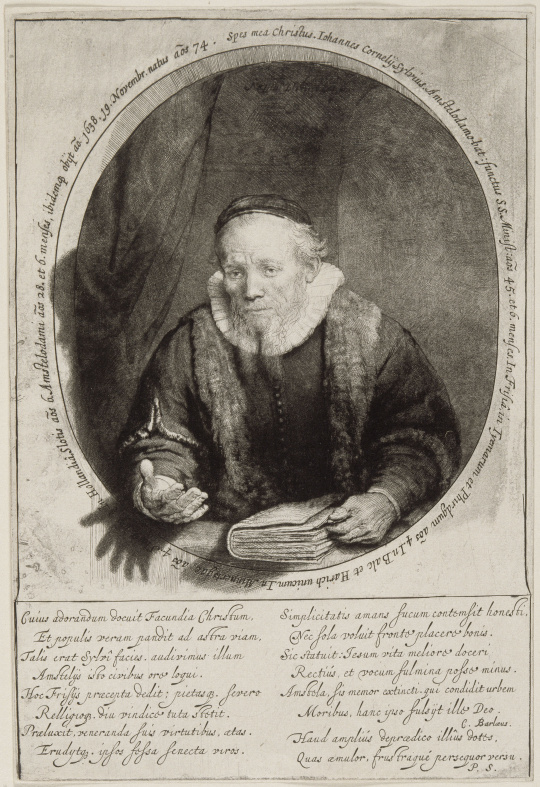 Spes mea Christus. Iohannes Cornelij Sylvius, Amstelodamobat: functus S.S. Minist: aōs 45. et 6. menses. In Frisia in Tyemarum et Phirdgum aōs 4. In Balc et Harich unicum. In Minnertsgae aōs 4. Hollandia Slotis aōs 6. Amstelodami aōs 28. et 6. menses, ibidemq obijt aō. 1638. 19. Novembr. natus aōs 74.
Cuius adorandum docuit Facundia Christum,
Et populis veram pandit ad astra viam,
Talis erat Sylvî facies. audivimus illum
Amstelijs isto civibus ore loqui.
Hoc Frisijs præcepta dedit; pietasq. severo
Relligioq. diu vindice tuta stetit.
Præluxit, veneranda suis virtutibus, ætas.
Erudytq. ipsos fessa senecta viros.
Simplicitatis amans fucum contemsit honesti,
Nec sola voluit fronte placere bonis.
Sic statuit: Iesum vita meliore doceri
Rectiùs, et vocum fulmina posse minus.
Amstola, sis memor extincti. qui condidit urbem
Moribus, hanc ipso fulsijt ille Deo.
C. Barlæus.
Haud amplius deprædico illius dotes,
Quas æmulor, frustraque persequor versu.
P. S.